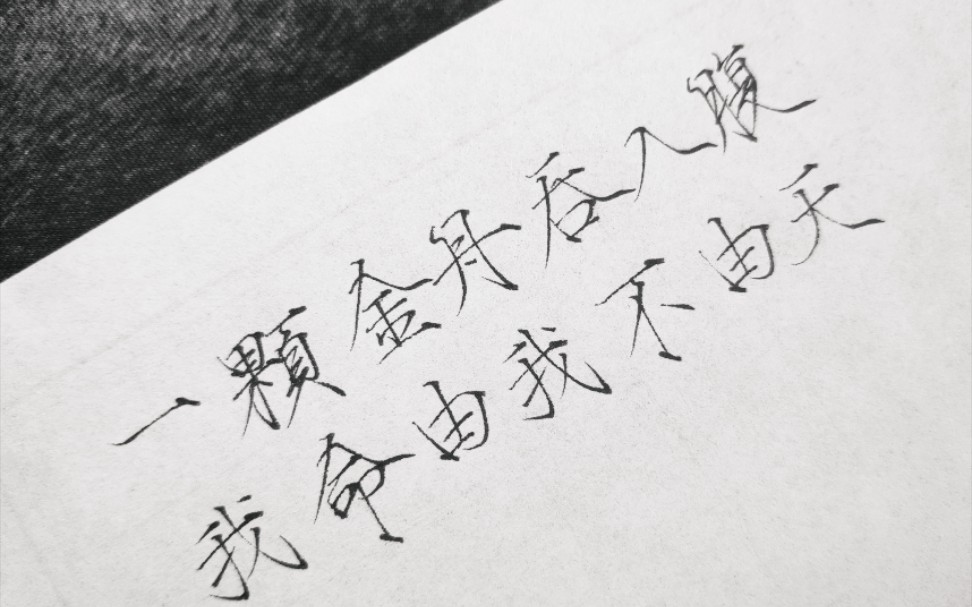 一顆金丹吞入腹
我命由我不由天